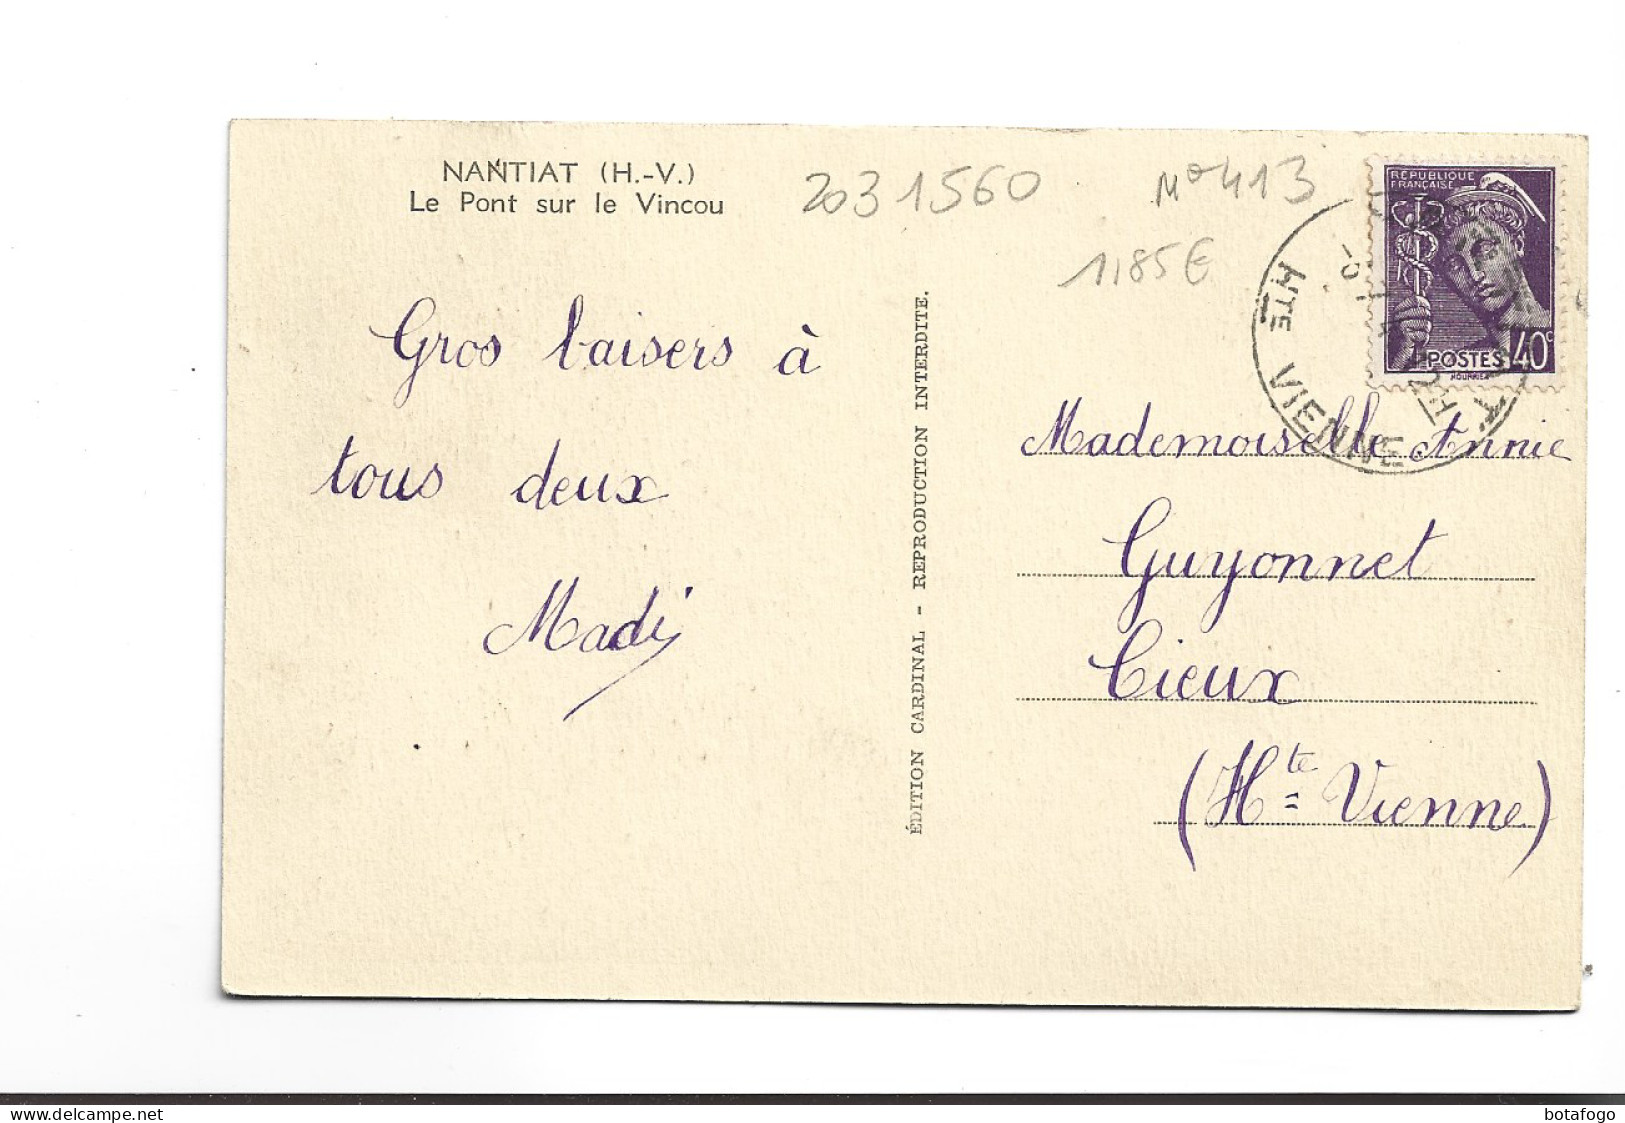 NANTIAT (H.-V.)
Le Pont sur le Vincou
2031560
N° 413
1,85€
RÉPUBLIQUE
FRANÇAISE
POSTES 40c
HTE VIENNE
Gros baisers à
tous deux
Madi
ÉDITION CARDINAL - REPRODUCTION INTERDITE.
Mademoiselle Annie
Guyonnet
Cieux
(Hte Vienne)
delcampe.net
botafogo